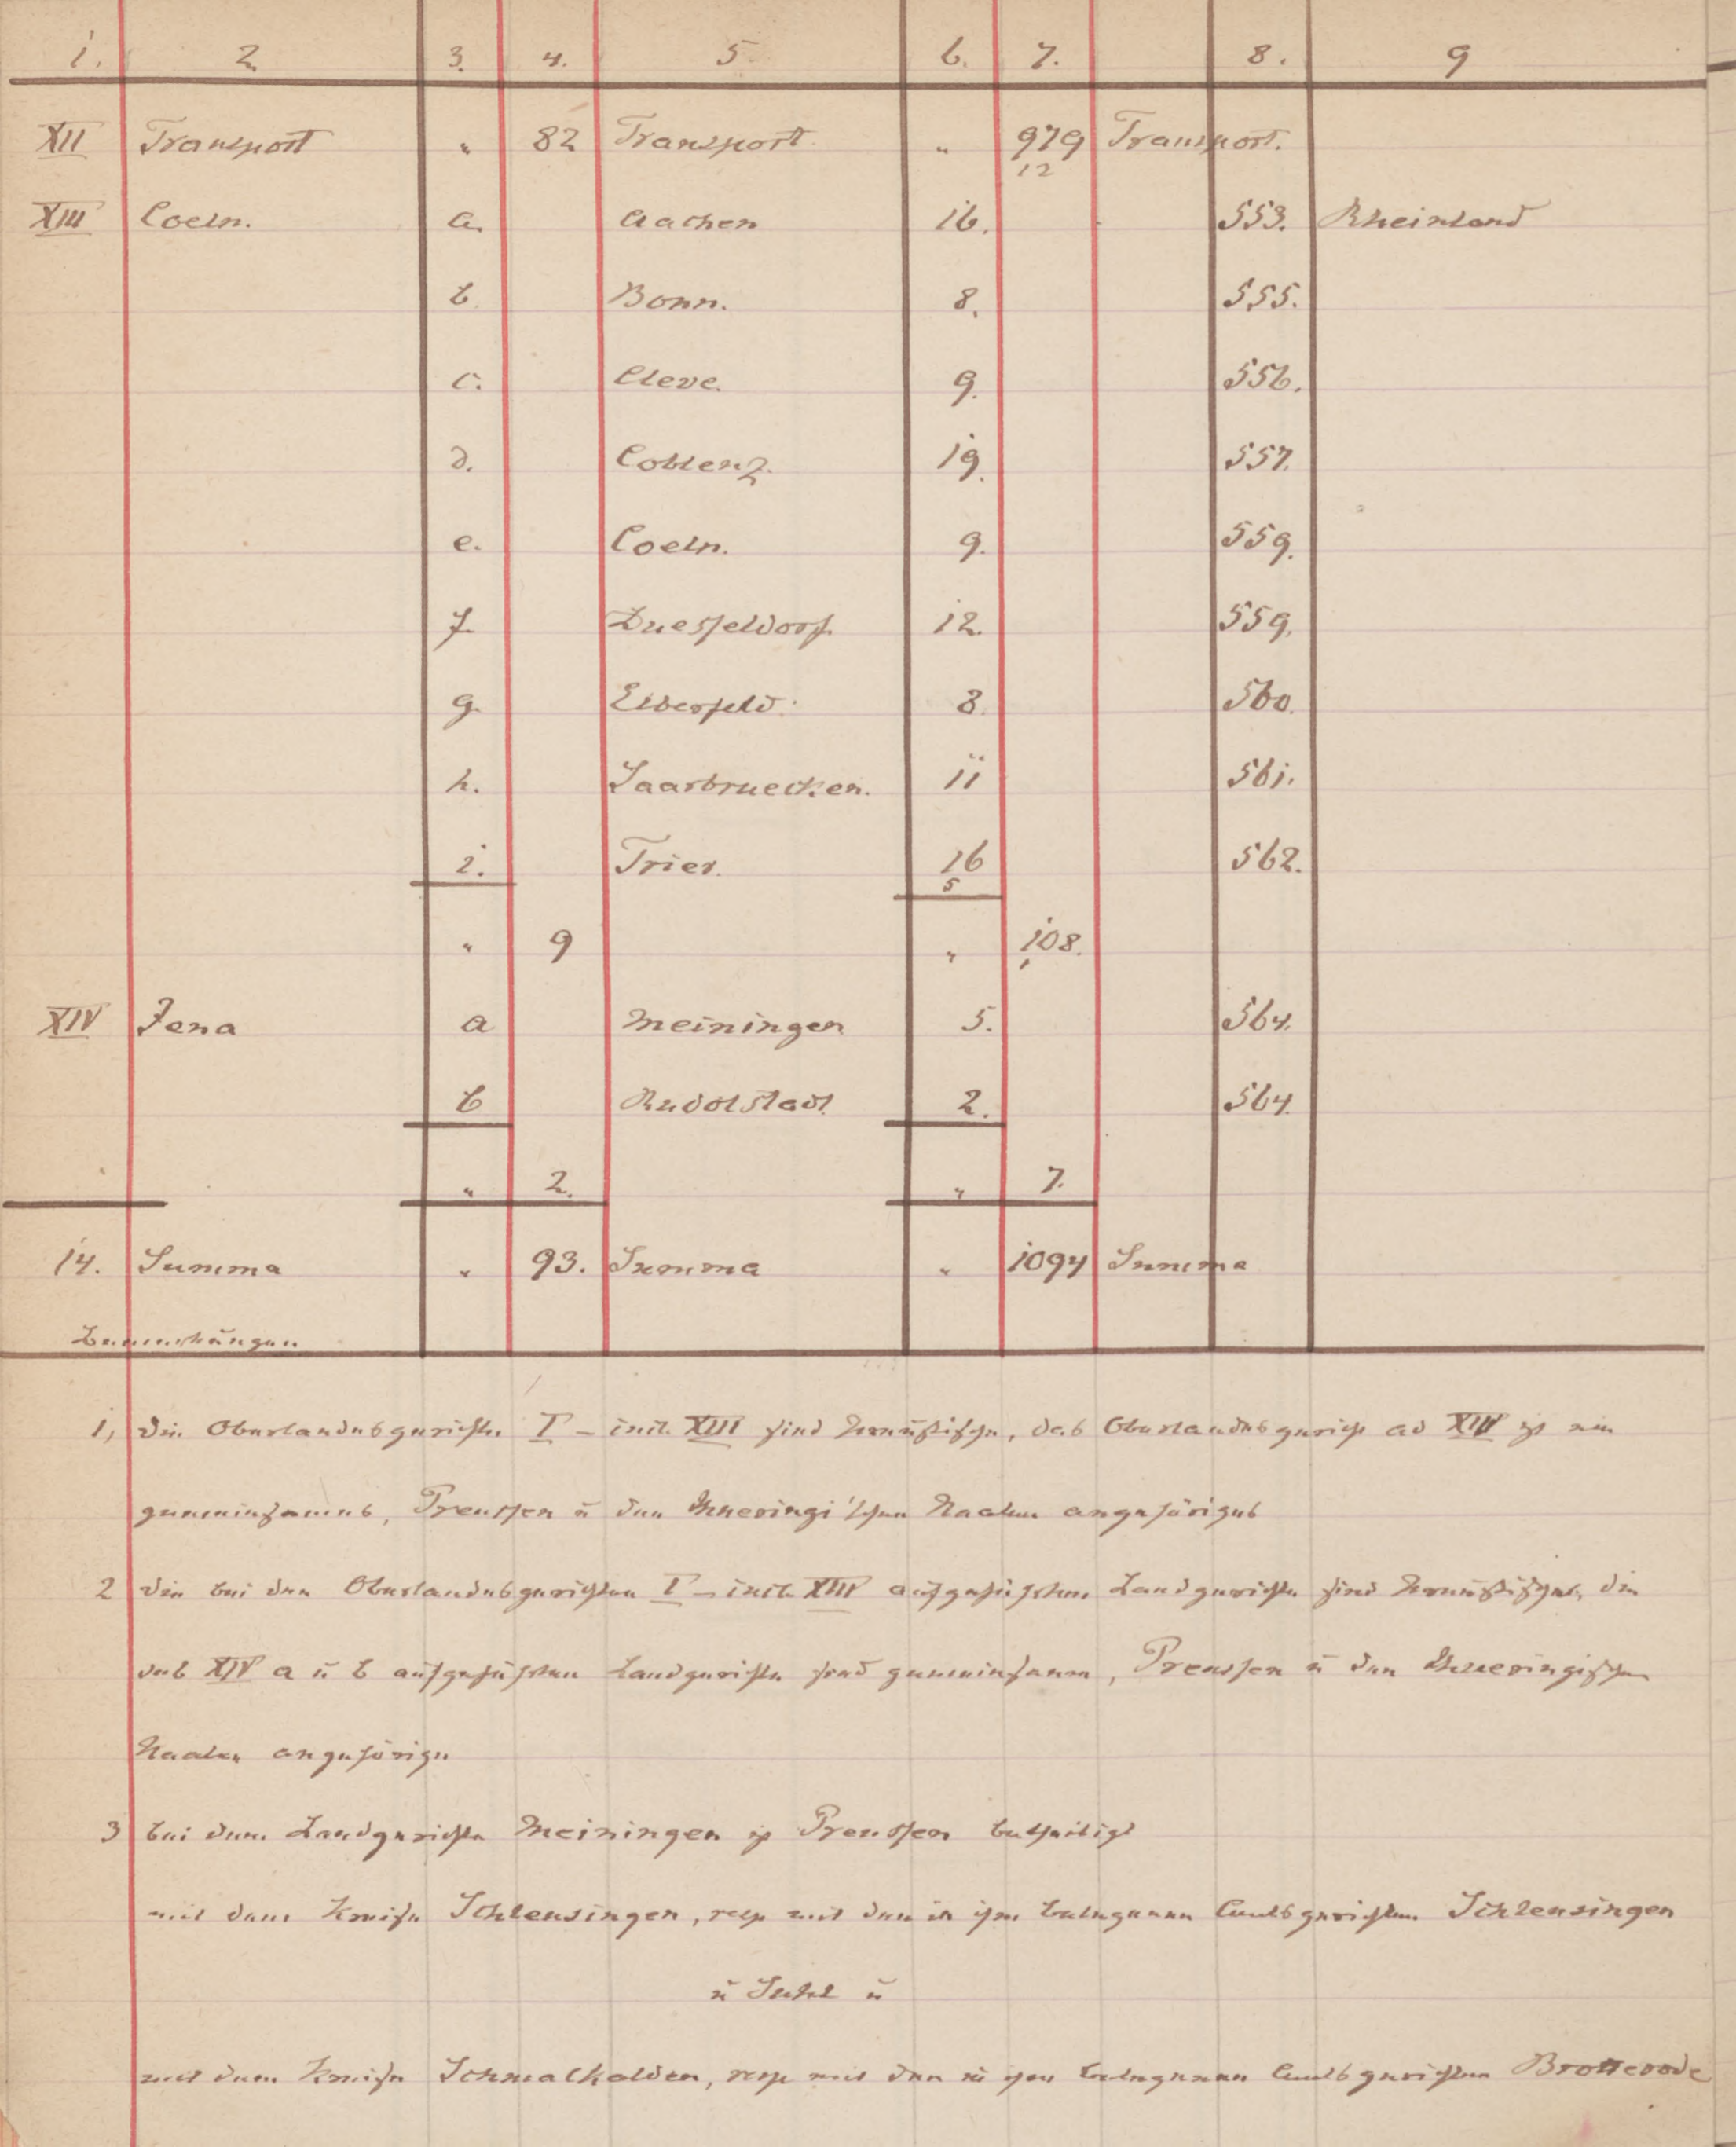 1. 2 3. 4. 5 6. 7. 8. 9
XII Transport " 82 Transport " 979 Transport.
12
XIII Coeln. a. Aachen 16. 553. Rheinland
b. Bonn. 8. 555.
c. Cleve. 9. 556.
d. Coblenz. 19. 557.
e. Coeln. 9. 559.
f. Duesseldorf. 12. 559.
g. Elberfeld. 8. 560.
h. Saarbruecken. 11 561.
i. Trier. 16 562.
5
" 9 " 108.
XIV Jena a Meiningen 5. 564.
b Rudolstadt 2. 564.
" 2. " 7.
14. Summa " 93. Summa " 1094 Summa
Bemerkungen
1, die Oberlandesgerichte I – incl. XIII sind Preußische, das Oberlandesgericht ad XIV ist ein
gemeinsames, Preussen u den Thueringi'schen Staaten angehöriges
2 die bei den Oberlandesgerichten I – incl. XIII aufgeführten Landgerichte sind Preußische, die
des XIV a u b aufgeführten Landgerichte sind gemeinsame, Preussen u den Thueringischen
Staaten angehörige
3 bei dem Landgerichte Meiningen ist Preussen betheiligt
mit dem Kreise Schleusingen, resp mit den in ihm belegenen Amtsgerichten Schleusingen
u Suhl u
mit dem Kreise Schmalkalden, resp mit den in ihm belegenen Amtsgerichten Brotterode